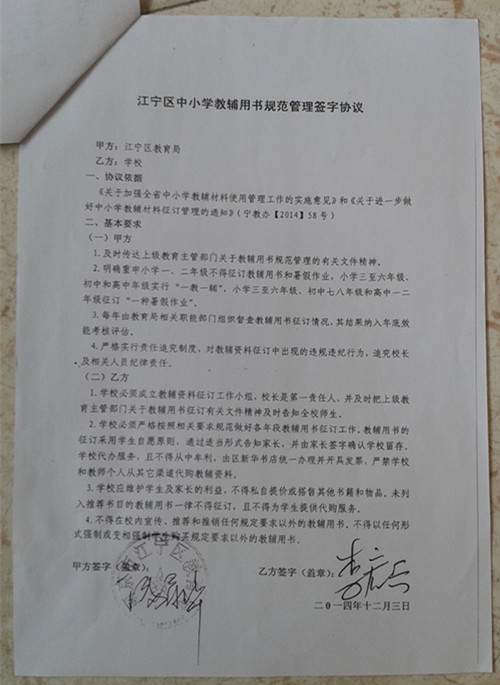 江宁区中小学教辅用书规范管理签字协议
甲方：江宁区教育局
乙方：学校
一、协议依据
《关于加强全省中小学教辅材料使用管理工作的实施意见》和《关于进一步做
好中小学教辅材料征订管理的通知》（宁教办【2014】58号）
二、基本要求
（一）甲方
1.及时传达上级教育主管部门关于教辅用书规范管理的有关文件精神。
2.明确重申小学一、二年级不得征订教辅用书和暑假作业，小学三至六年级、
初中和高中年级实行“一教一辅”，小学三至六年级、初中七八年级和高中一二
年级征订“一种暑假作业”。
3.每年由教育局相关职能部门组织督查教辅用书征订情况，其结果纳入年底效
能考核评估。
4.严格实行责任追究制度，对教辅资料征订中出现的违规违纪行为，追究校长
及相关人员纪律责任。
（二）乙方
1.学校必须成立教辅资料征订工作小组，校长是第一责任人，并及时把上级教
育主管部门关于教辅用书征订有关文件精神及时告知全校师生。
2.学校必须严格按照相关要求规范做好各年段教辅用书征订工作。教辅用书的
征订采用学生自愿原则，通过适当形式告知家长，并由家长签字确认学校留存。
学校代办服务，且不得从中牟利，由区新华书店统一办理并开具发票，严禁学校
和教师个人从其它渠道代购教辅资料。
3.学校应维护学生及家长的利益，不得私自提价或搭售其他书籍和物品。未列
入推荐书目的教辅用书一律不得征订，且不得为学生提供代购服务。
4.不得在校内宣传、推荐和推销任何规定要求以外的教辅用书。不得以任何形
式强制或变相强制学生购买规定要求以外的教辅用书。
甲方签字（盖章）：
乙方签字（盖章）：
二〇一四年十二月三日